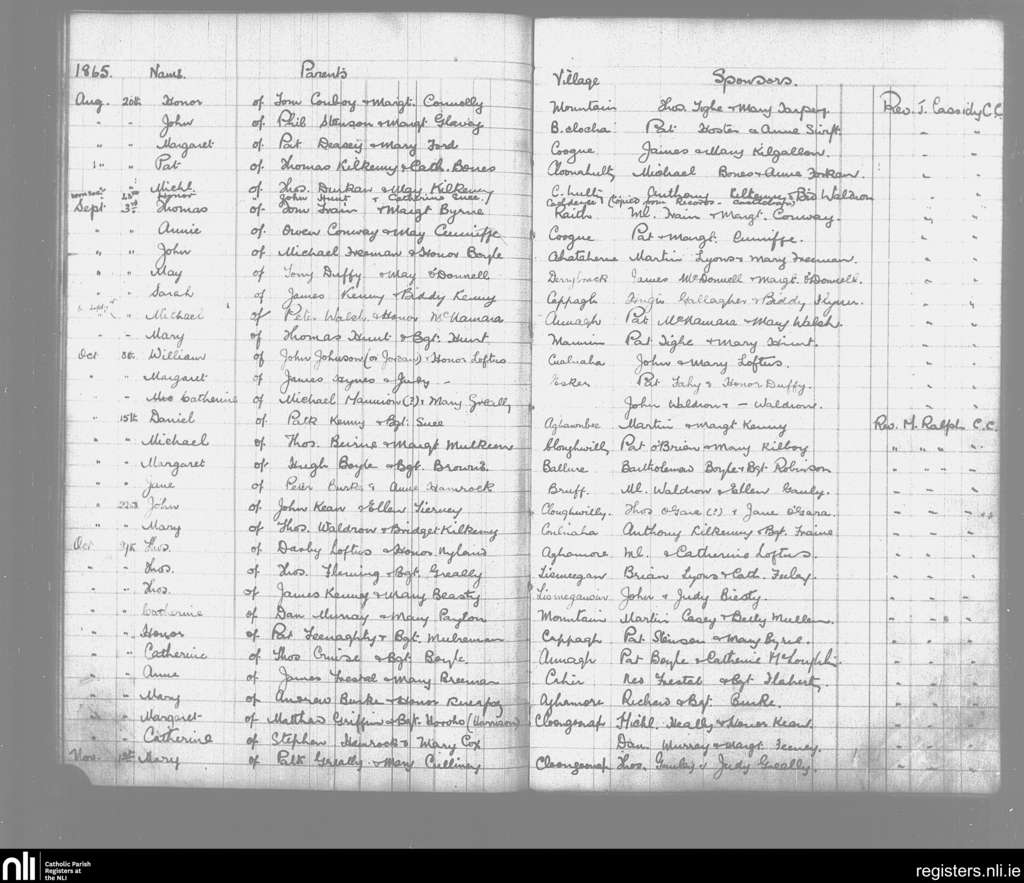 1865. Name. Parents Village Sponsors.
Aug. 20th Honor of Tom Conboy & Margt. Connolly Mountain Thos. Tighe & Mary Tarpey Rev. J. Cassidy C.C.
" " John of Phil Stenson & Margt Glavey B.clocha Pat Hosten & Anne Swift " "
" " Margaret of Pat Deasey & Mary Ford Coogue James & Mary Kilgallon. " "
" " Pat of Thomas Kilkenny & Cath. Bones Cloonbulty Michael Bones & Anne Forkan. " "
" Michl. of Thos. Durkan & May Kilkenny C. hulty Anthony Kilkenny & Bid Waldron " "
Honor John Hunt & Catherine (Copied from Records -
Sept 3rd Thomas of Tom Frain & Margt Byrne Raith Ml. Frain & Margt. Conway. " "
" " Annie of Owen Conway & May Cunniffe Coogue Pat & Margt. Cunniffe. " "
" " John of Michael Freeman & Honor Boyle Martin Lyons & Mary Freeman. " "
" " May of Tony Duffy & May O'Donnell Derrybrack James McDonnell & Margt. O'Donnell. " "
" " Sarah of James Kenny & Biddy Kenny Cappagh Gallagher & Biddy " "
" " Michael of Pete. Walsh & Honor McNamara Annagh Pat McNamara & Mary Walsh. " "
" " Mary of Thomas Hunt & Bgt. Hunt. Mannin Pat Tighe & Mary Hunt. " "
Oct 8th William of John Johnson (or Jordan) & Honor Loftus John & Mary Loftus. " "
" " Margaret of James Hynes & Judy - Esker Pat Fahy & Honor Duffy. " "
" Catherine of Michael Mannion (?) & Mary Greally John Waldron & - Waldron. " "
" 15th Daniel of Patk Kenny & Bgt. Martin & Margt Kenny Rev. M. Ralph C.C.
" " Michael of Thos. Beirne & Margt Mulkeen Cloughwilly Pat O'Brien & Mary Kilboy " " " "
" " Margaret of Hugh Boyle & Bgt. Brown. Ballure Bartholomew Boyle & Bgt Robinson " " " "
" " Jane of Peter Burke & Anne Hamrock Bruff. Ml. Waldron & Ellen Gauly. " " "
" 22nd John of John Kean & Ellen Tierney Cloughwilly. Thos O'Gara (?) & Jane O'Gara. " " "
" " Mary of Thos. Waldron & Bridget Kilkenny Anthony Kilkenny & Bgt. Fraine " " "
Oct Thos. of Darby Loftus & Honor Nyland Aghamore Ml. & Catherine Loftus. " " "
" " Thos. of Thos. Fleming & Bgt. Greally Lismeegan Brian Lyons & Cath. Feeley. " " "
" " Thos. of James Kenny & Mary Beasty John & Judy Biesty. " " "
" " Catherine of Dan Murray & Mary Payton Mountain Martin Casey & Beily Mullen. " " "
" " Honor of Pat Feenaghty & Bgt. Mulrenan Cappagh Pat Stenson & Mary Byrne. " " "
" " Catherine of Thos Cruise & Bgt. Boyle. Annagh Pat Boyle & Catherine McLoughlin. " " "
" " Anne of James Frestel & Mary Breenan Cahir Frestel & Bgt Flaherty. " " "
" " Mary of Andrew Burke & Honor Aghamore Richard & Bgt. Burke. " " "
" " Margaret of Matthew Griffin & Bgt. Horoho (Harrison) Michl. Heally & Honor Kean. " " "
" " Catherine of Stephen Hamrock & Mary Cox Dan Murray & Margt. Feeney. " " "
Nov. 1st Mary of Patk Greally & Mary Culliney Thos. & Judy Greally. " " "
nli Catholic Parish Registers at the NLI
registers.nli.ie